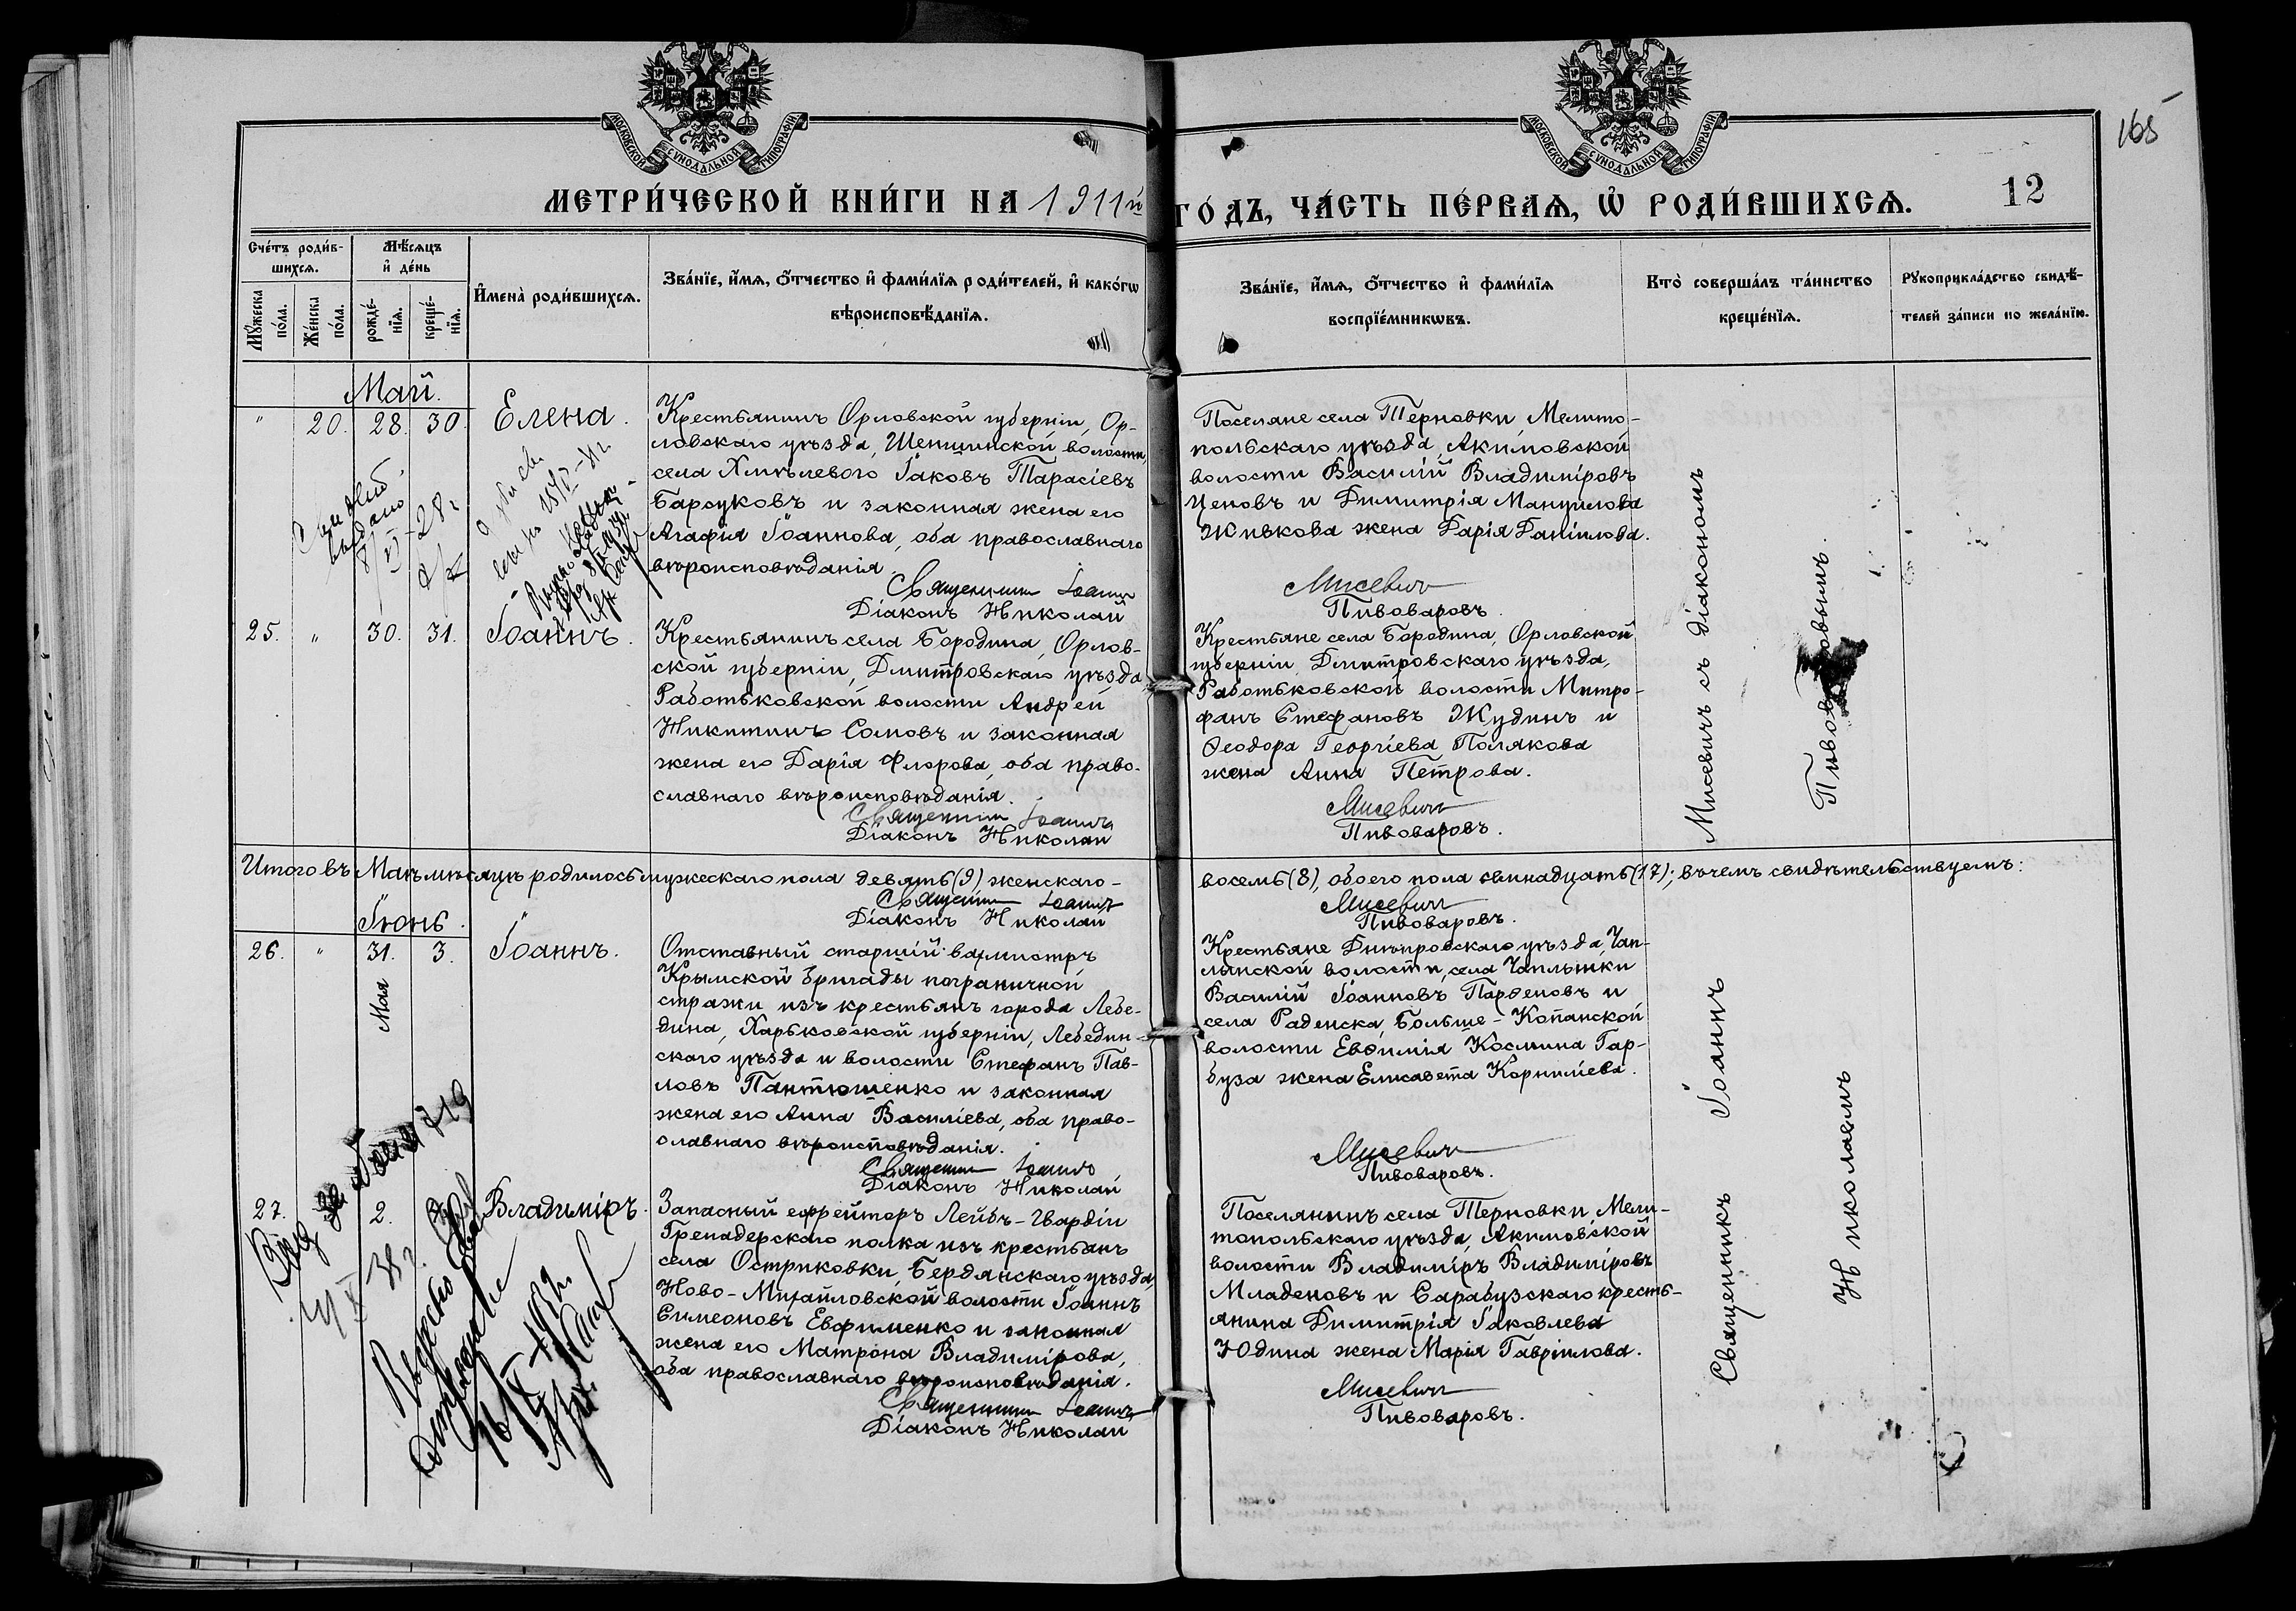 МОСКОВСКОЙ СѴНОДАЛЬНОЙ ТИПОГРАФІИ
МОСКОВСКОЙ СѴНОДАЛЬНОЙ ТИПОГРАФІИ
165
МЕТРИ́ЧЕСКОЙ КНИ́ГИ НА 1911й
ГО́ДЪ, ЧА́СТЬ ПЕ́РВАѦ, Ѡ҆ РОДИ́ВШИХСѦ.
12
Сче́тъ роди́в-
шихсѧ.
Мѣ́сѧцъ
и҆ де́нь
Мꙋ́жеска по́ла.
Же́нска по́ла.
рожде́-
нїѧ.
креще́-
нїѧ.
И҆мена̀ роди́вшихсѧ.
Зва́нїе, и҆́мѧ, ѻ҆́тчество и҆ фами́лїѧ роди́телей, и҆ како́гѡ
вѣроисповѣ́данїѧ.
Зва́нїе, и҆́мѧ, ѻ҆́тчество и҆ фами́лїѧ
воспрїе́мникѡвъ.
Кто̀ соверша́лъ та́инство
креще́нїѧ.
Рꙋкоприкла́дство свидѣ́-
телей за́писи по жела́нїю.
Май.
" 20. 28. 30. Елена.
Крестьянинъ Орловской губерніи, Ор-
ловскаго уѣзда, Шеншинской волости,
села Хмѣлевого Іаковъ Тарасіевъ
Барсуковъ и законная жена его
Агафія Іоаннова, оба православнаго
вѣроисповѣданія.
Священникъ Іоаннъ
Діаконъ Николай
Поселяне села Терновки, Мелито-
польскаго уѣзда, Акимовской
волости Василій Владиміровъ
Ценовъ и Димитрія Мануилова
Живкова жена Дарія Даніилова.
Мисевичъ
Пивоваровъ.
выдано
25. " 30. 31. Іоаннъ.
Крестьянинъ села Бородина, Орлов-
ской губерніи, Дмитровскаго уѣзда
Работьковской волости Андрей
Никитинъ Сомовъ и законная
жена его Дарія Флорова, оба право-
славнаго вѣроисповѣданія.
Священникъ Іоаннъ
Діаконъ Николай
Крестьяне села Бородина, Орловской
губерніи Дмитровскаго уѣзда,
Работьковской волости Митро-
фанъ Стефановъ Жудинъ и
Ѳеодора Георгіева Полякова
жена Анна Петрова.
Мисевичъ
Пивоваровъ.
Итого въ Маѣ мѣсяцѣ родилось мужескаго пола девять (9), женскаго -
восемь (8), обоего пола семнадцать (17); въ чемъ свидѣтельствуемъ:
Священникъ Іоаннъ
Діаконъ Николай
Мисевичъ
Пивоваровъ.
Іюнь.
26. " 31. 3. Іоаннъ.
Мая
Отставный старшій вахмистръ
Крымской бригады пограничной
стражи изъ крестьянъ города Лебе-
дина, Харьковской губерніи, Лебедин-
скаго уѣзда и волости Стефанъ Пав-
ловъ Пантюшенко и законная
жена его Анна Василіева, оба право-
славнаго вѣроисповѣданія.
Священникъ Іоаннъ
Діаконъ Николай
Крестьяне Днѣпровскаго уѣзда, Чап-
лынской волости, села Чаплынки
Василій Іоанновъ Парѳеновъ и
села Раденска, Больше-Копанской
волости Евѳимія Космина Гар-
буза жена Елисавета Корниліева.
Мисевичъ
Пивоваровъ.
27. 2. Владиміръ.
Запасный ефрейторъ Лейбъ-Гвардіи
Гренадерскаго полка изъ крестьянъ
села Остриковки, Бердянскаго уѣзда,
Ново-Михайловской волости Іоаннъ
Симеоновъ Евфименко и законная
жена его Матрона Владимірова,
оба православнаго вѣроисповѣданія.
Священникъ Іоаннъ
Діаконъ Николай
Поселянинъ села Терновки Мели-
топольскаго уѣзда, Акимовской
волости Владиміръ Владиміровъ
Младеновъ и Сарабузскаго кресть-
янина Димитрія Іаковлева
Юдина жена Марія Гавріилова.
Мисевичъ
Пивоваровъ.
Священникъ Іоаннъ Мисевичъ съ діакономъ
Николаемъ Пивоваровымъ.